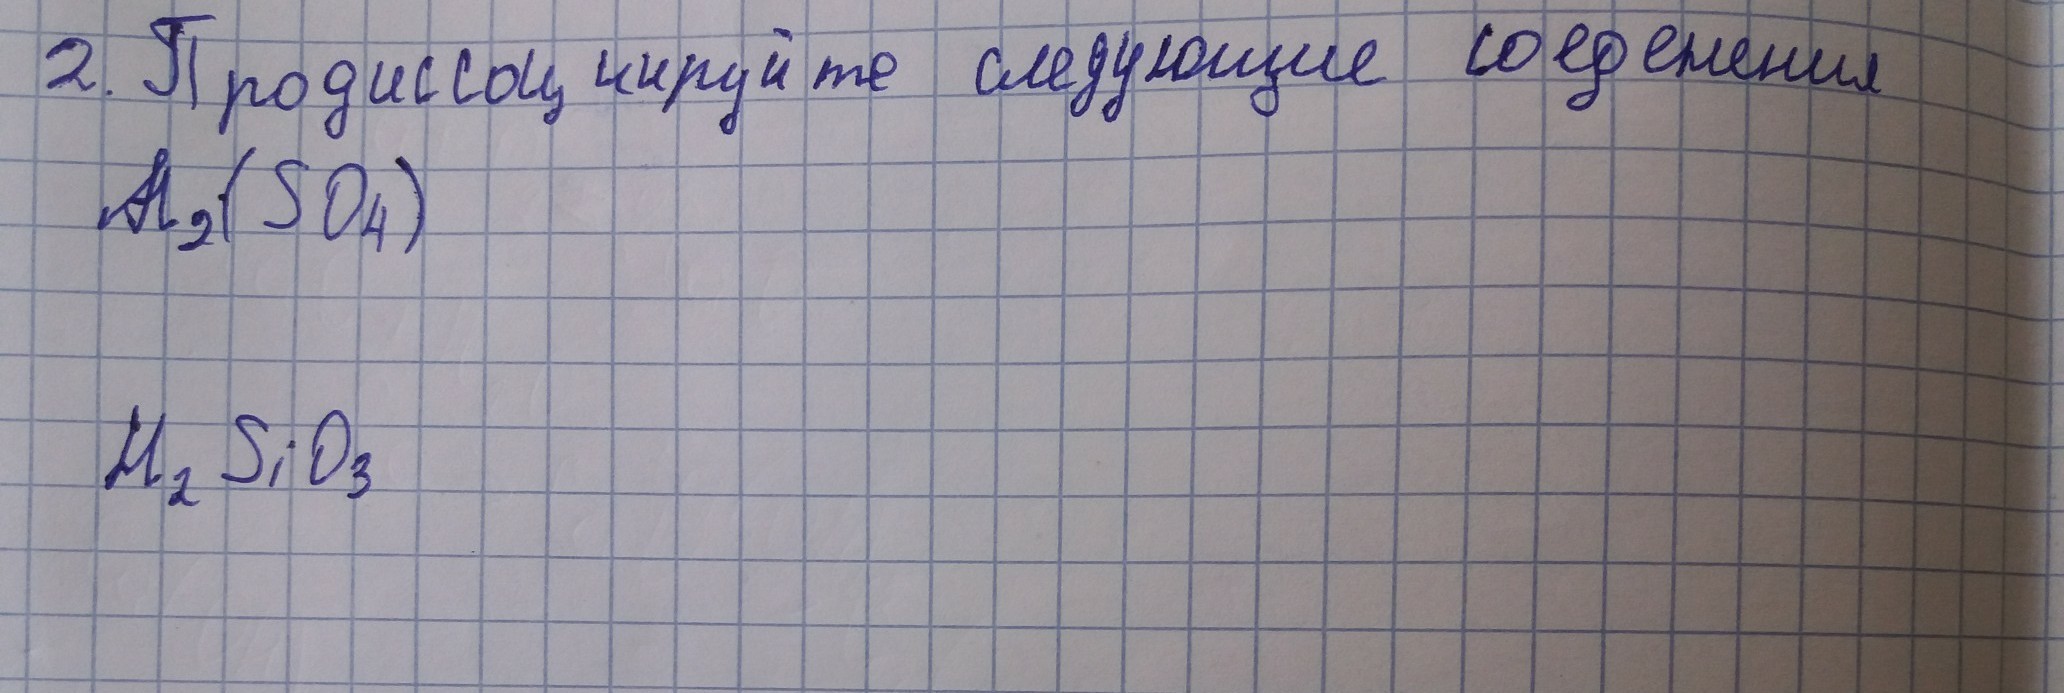 2. Продиссоциируйте следующие соеденения
Al₂(SO₄)
H₂SiO₃